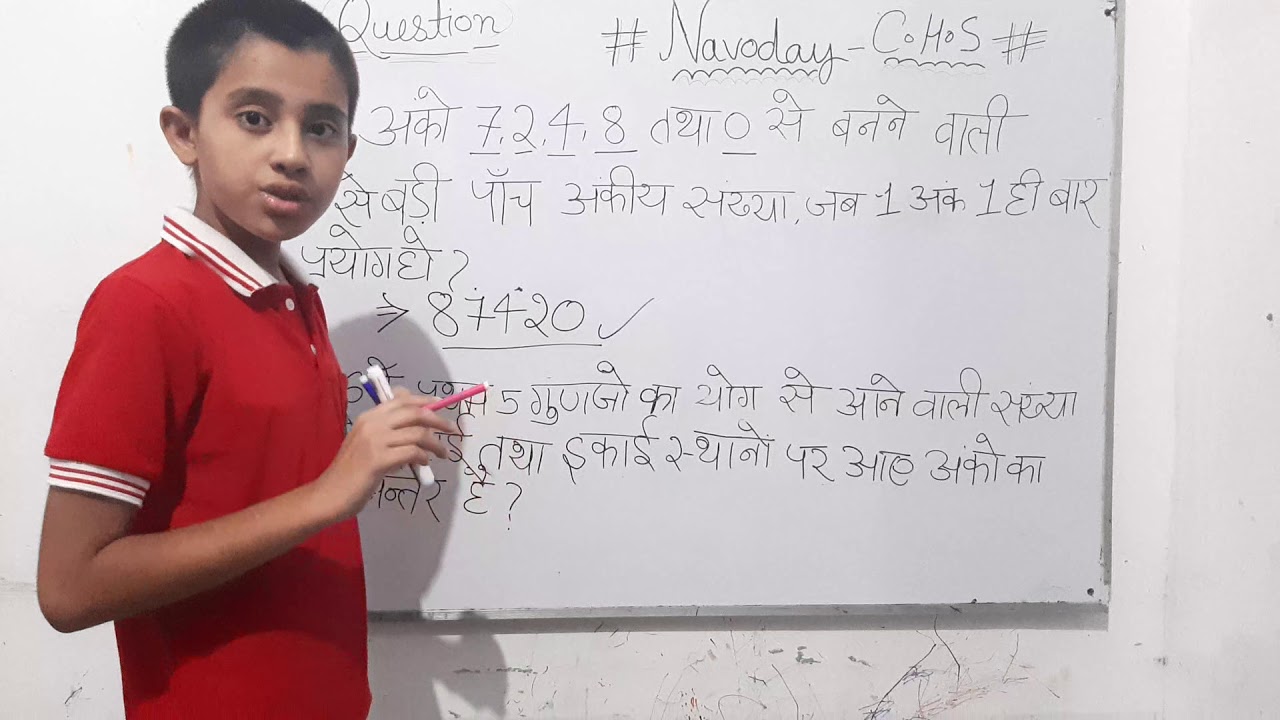 Question
# Navoday - C.H.S #
अंको 7, 2, 4, 8 तथा 0 से बनने वाली
से बड़ी पाँच अंकीय संख्या, जब 1 अंक 1 ही बार
प्रयोग हो ?
⇒ 87420 ✓
5 गुणजो का योग से आने वाली संख्या
तथा इकाई स्थानों पर आए अंको का
है ?